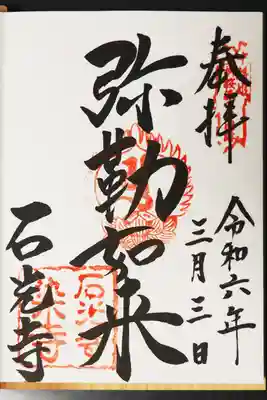 奉拝
令和六年
三月三日
弥勒如来
石光寺